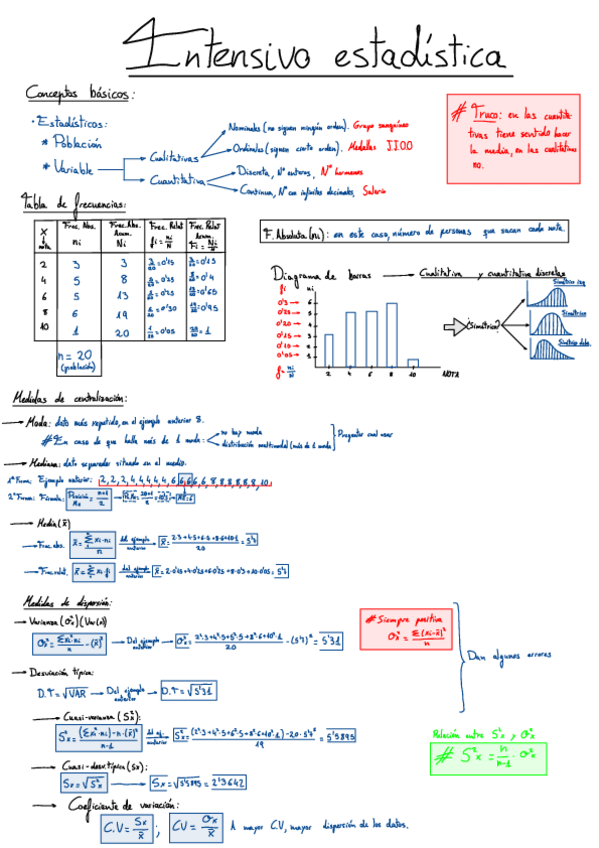 Intensivo estadística
Conceptos básicos:
· Estadísticos:
* Población
* Variable
Cualitativas
Cuantitativa
Nominales (no siguen ningún orden). Grupo sanguíneo
Ordinales (siguen cierto orden). Medallas JJ.OO
Discreta, Nº enteros, Nº hermanos
Continua, Nº con infinitos decimales, Salario
# Truco: en las cuantita-
tivas tiene sentido hacer
la media, en las cualitativas
no.
Tabla de frecuencias:
X nota | Frec. Abs. ni | Frec. Abs. Acum. Ni | Frec. Relat fi = ni/N | Frec. Relat Acum. Fi = Ni/N
2 | 3 | 3 | 3/20 = 0'15 | 3/20 = 0'15
4 | 5 | 8 | 5/20 = 0'25 | 8/20 = 0'4
6 | 5 | 13 | 5/20 = 0'25 | 13/20 = 0'65
8 | 6 | 19 | 6/20 = 0'30 | 19/20 = 0'95
10 | 1 | 20 | 1/20 = 0'05 | 20/20 = 1
n = 20
(población)
F. Absoluta (ni): en este caso, número de personas que sacan cada nota.
Diagrama de barras → Cualitativa y cuantitativa discretas
fi ni
0'3 → 6
0'25 → 5
0'20 → 4
0'15 → 3
0'10 → 2
0'05 → 1
fi = ni/N
2 4 6 8 10 NOTA
¿Simétrica?
Simétrica izq
Simétrica
Medidas de centralización:
→ Moda: dato más repetido, en el ejemplo anterior 8.
# En caso de que halla más de 1 moda:
no hay moda
distribución multimodal (más de 1 moda)
Preguntar cual usar
→ Mediana: dato separador situado en el medio.
1ª Forma: Ejemplo anterior: 2,2,2,4,4,4,4,4,6,6,6,6,6,8,8,8,8,8,8,10
2ª Forma: Fórmula:
→ Media (x̄)
→ Frec. abs. Del ejemplo anterior
→ Frec. relat. Del ejemplo anterior
Medidas de dispersión:
→ Varianza (σx²) (Var(x))
→ Del ejemplo anterior = 5'31
# Siempre positiva
σx² = Σ(xi-x̄)²/n
Dan algunos errores
→ Desviación típica:
D.T = √VAR → Del ejemplo anterior → D.T = √5'31
→ Cuasi-varianza (Sx²):
Sx² = (Σxi²·ni)-n·(x̄)²/n-1 Del ej. anterior = 5'5895
→ Cuasi-desv. típica (Sx):
Sx = √Sx² → Sx = √5'5895 = 2'3642
Relación entre Sx² y σx²
# Sx² = n/n-1 · σx²
→ Coeficiente de variación:
C.V = Sx/x̄ ; CV = σx/x̄ A mayor C.V, mayor dispersión de los datos.